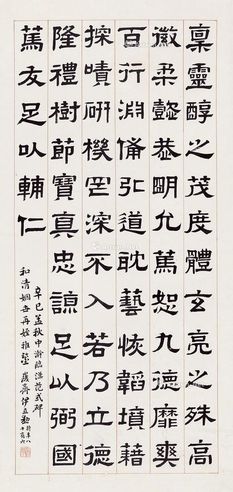 稟靈醇之茂度體玄亮之殊高
徽柔懿恭明允篤恕九德靡爽
百行淵備弘道耽藝恢韜墳
探嘖研機罔深不入若乃立德
隆禮樹節寶真忠諒足以弼國
篤友足以輔仁
辛巳孟秋中澣臨漢范式碑
和清姻世再姪雅鑒 峻齋伊立勳時年八十有六